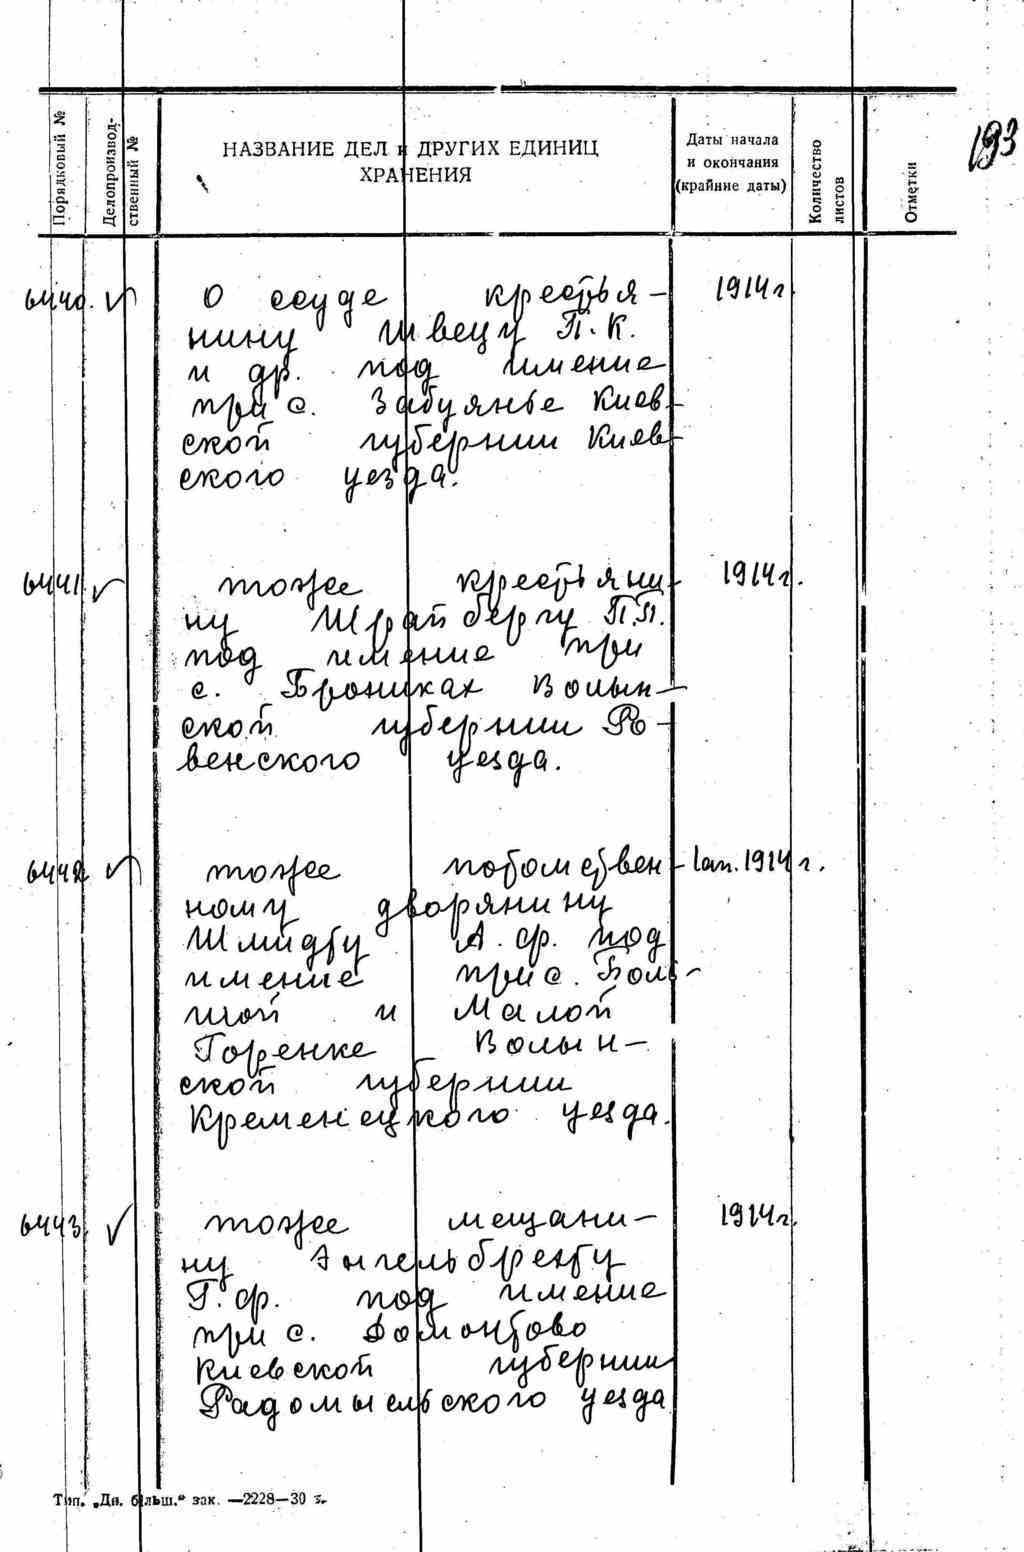 193
Порядковый №
Делопроизвод-
ственный №
НАЗВАНИЕ ДЕЛ и ДРУГИХ ЕДИНИЦ
ХРАНЕНИЯ
Даты начала
и окончания
(крайние даты)
Количество
листов
Отметки
6440. О ссуде крестья- 1914г
нину Швецу П.К.
и др. под имение
при с. Забуянье Киев-
ской губернии Киев-
ского уезда.
6441 тоже крестьяни- 1914г.
ну Шрайбергу П.П.
под имение при
с. Брониках Волын-
ской губернии Ро-
венского уезда.
6442 тоже потомствен- 1ап.1914г.
ному дворянину
Шмидту А.Ф. под
имение при с. Боль-
шой и Малой
Горенке Волын-
ской губернии
Кременецкого уезда.
6443. тоже мещани- 1914г.
ну Энгельбрехту
Г.Ф. под имение
при с. Домонтово
Киевской губернии
Радомысльского уезда
Тип. „Дн. більш.“ зак. —2228—30 т.